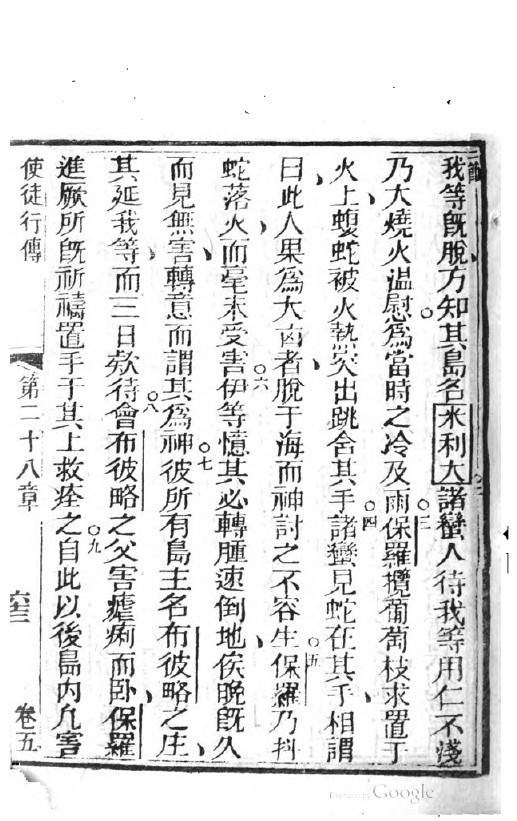 節
我等旣脫方知其島名米利大諸蠻人待我等用仁不淺
二
乃大燒火温慰爲當時之冷及雨保羅攬葡萄枝求置于
三
火上蝮蛇被火熱突出跳舍其手諸蠻見蛇在其手相謂
四
曰此人果爲大凶者脫于海而神討之不容生保羅乃抖
五
蛇落火而毫未受害伊等憶其必轉腫速倒地俟晩旣久
六
而見無害轉意而謂其爲神彼所有島主名布彼略之庄
七
其延我等而三日欵待會布彼略之父害瘧痢而卧保羅
八
進厥所旣祈禱置手于其上救痊之自此以後島内凢害
九
使徒行傳 第二十八章 六十三 卷五
Digitized by Google